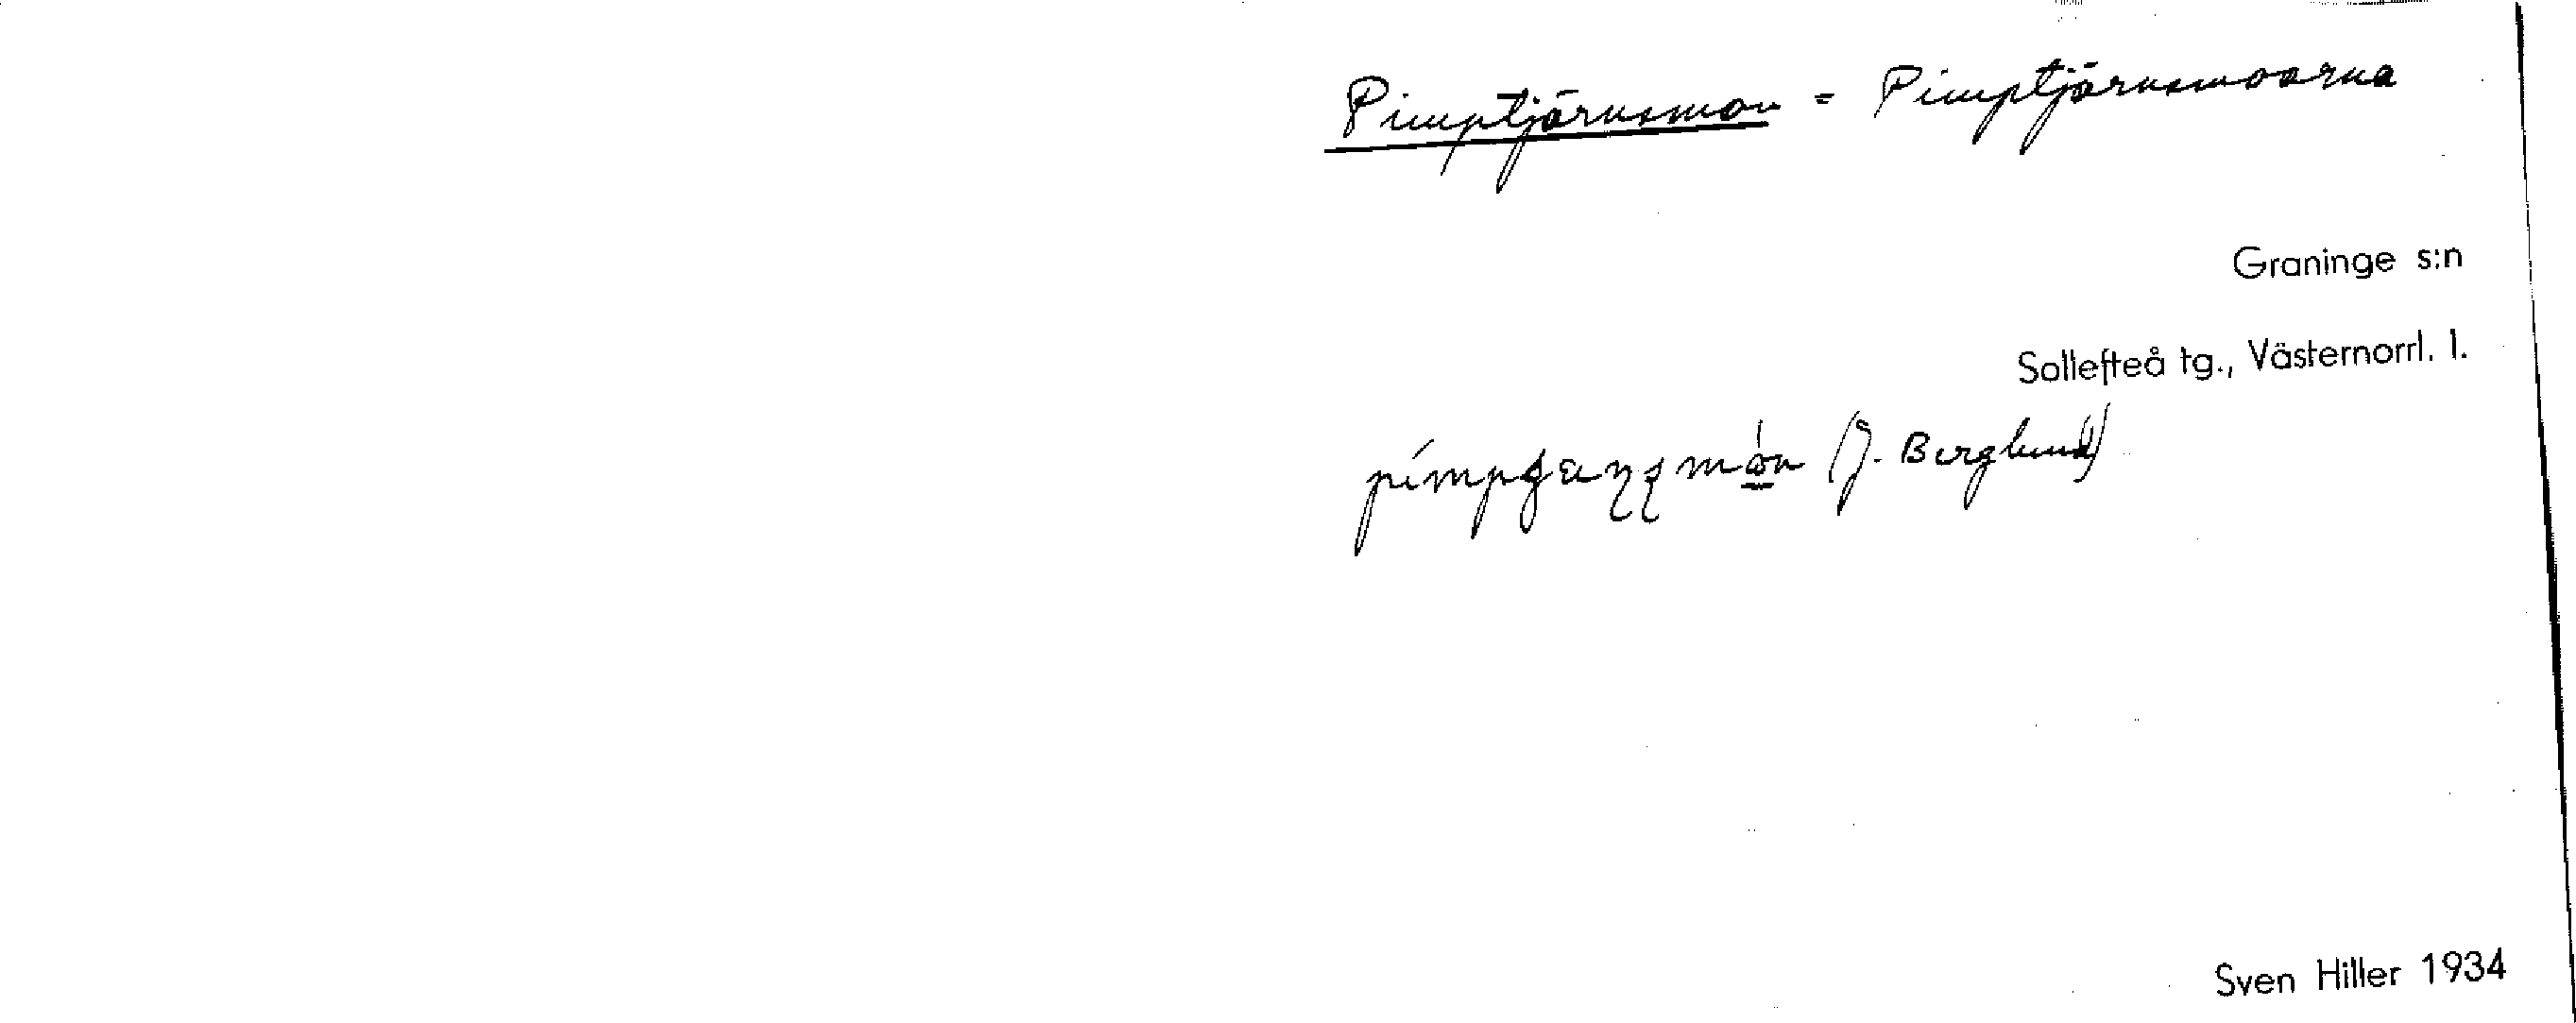 Pimptjärnsmon = Pimptjärnsmoarna
Graninge s:n
Sollefteå tg., Västernorrl. l.
(J. Berglund)
Sven Hiller 1934